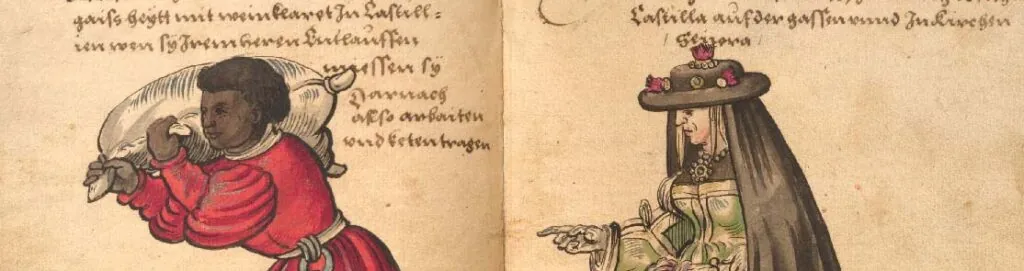 gaiss heÿtt mit wein klaret In Castill-
ien wen sÿ Irem heren Entlauffen
miessen sÿ
Darnach
also arbaiten
vnd keten tragen
Castilla auf der gassen vnnd In Kirchen
Senora